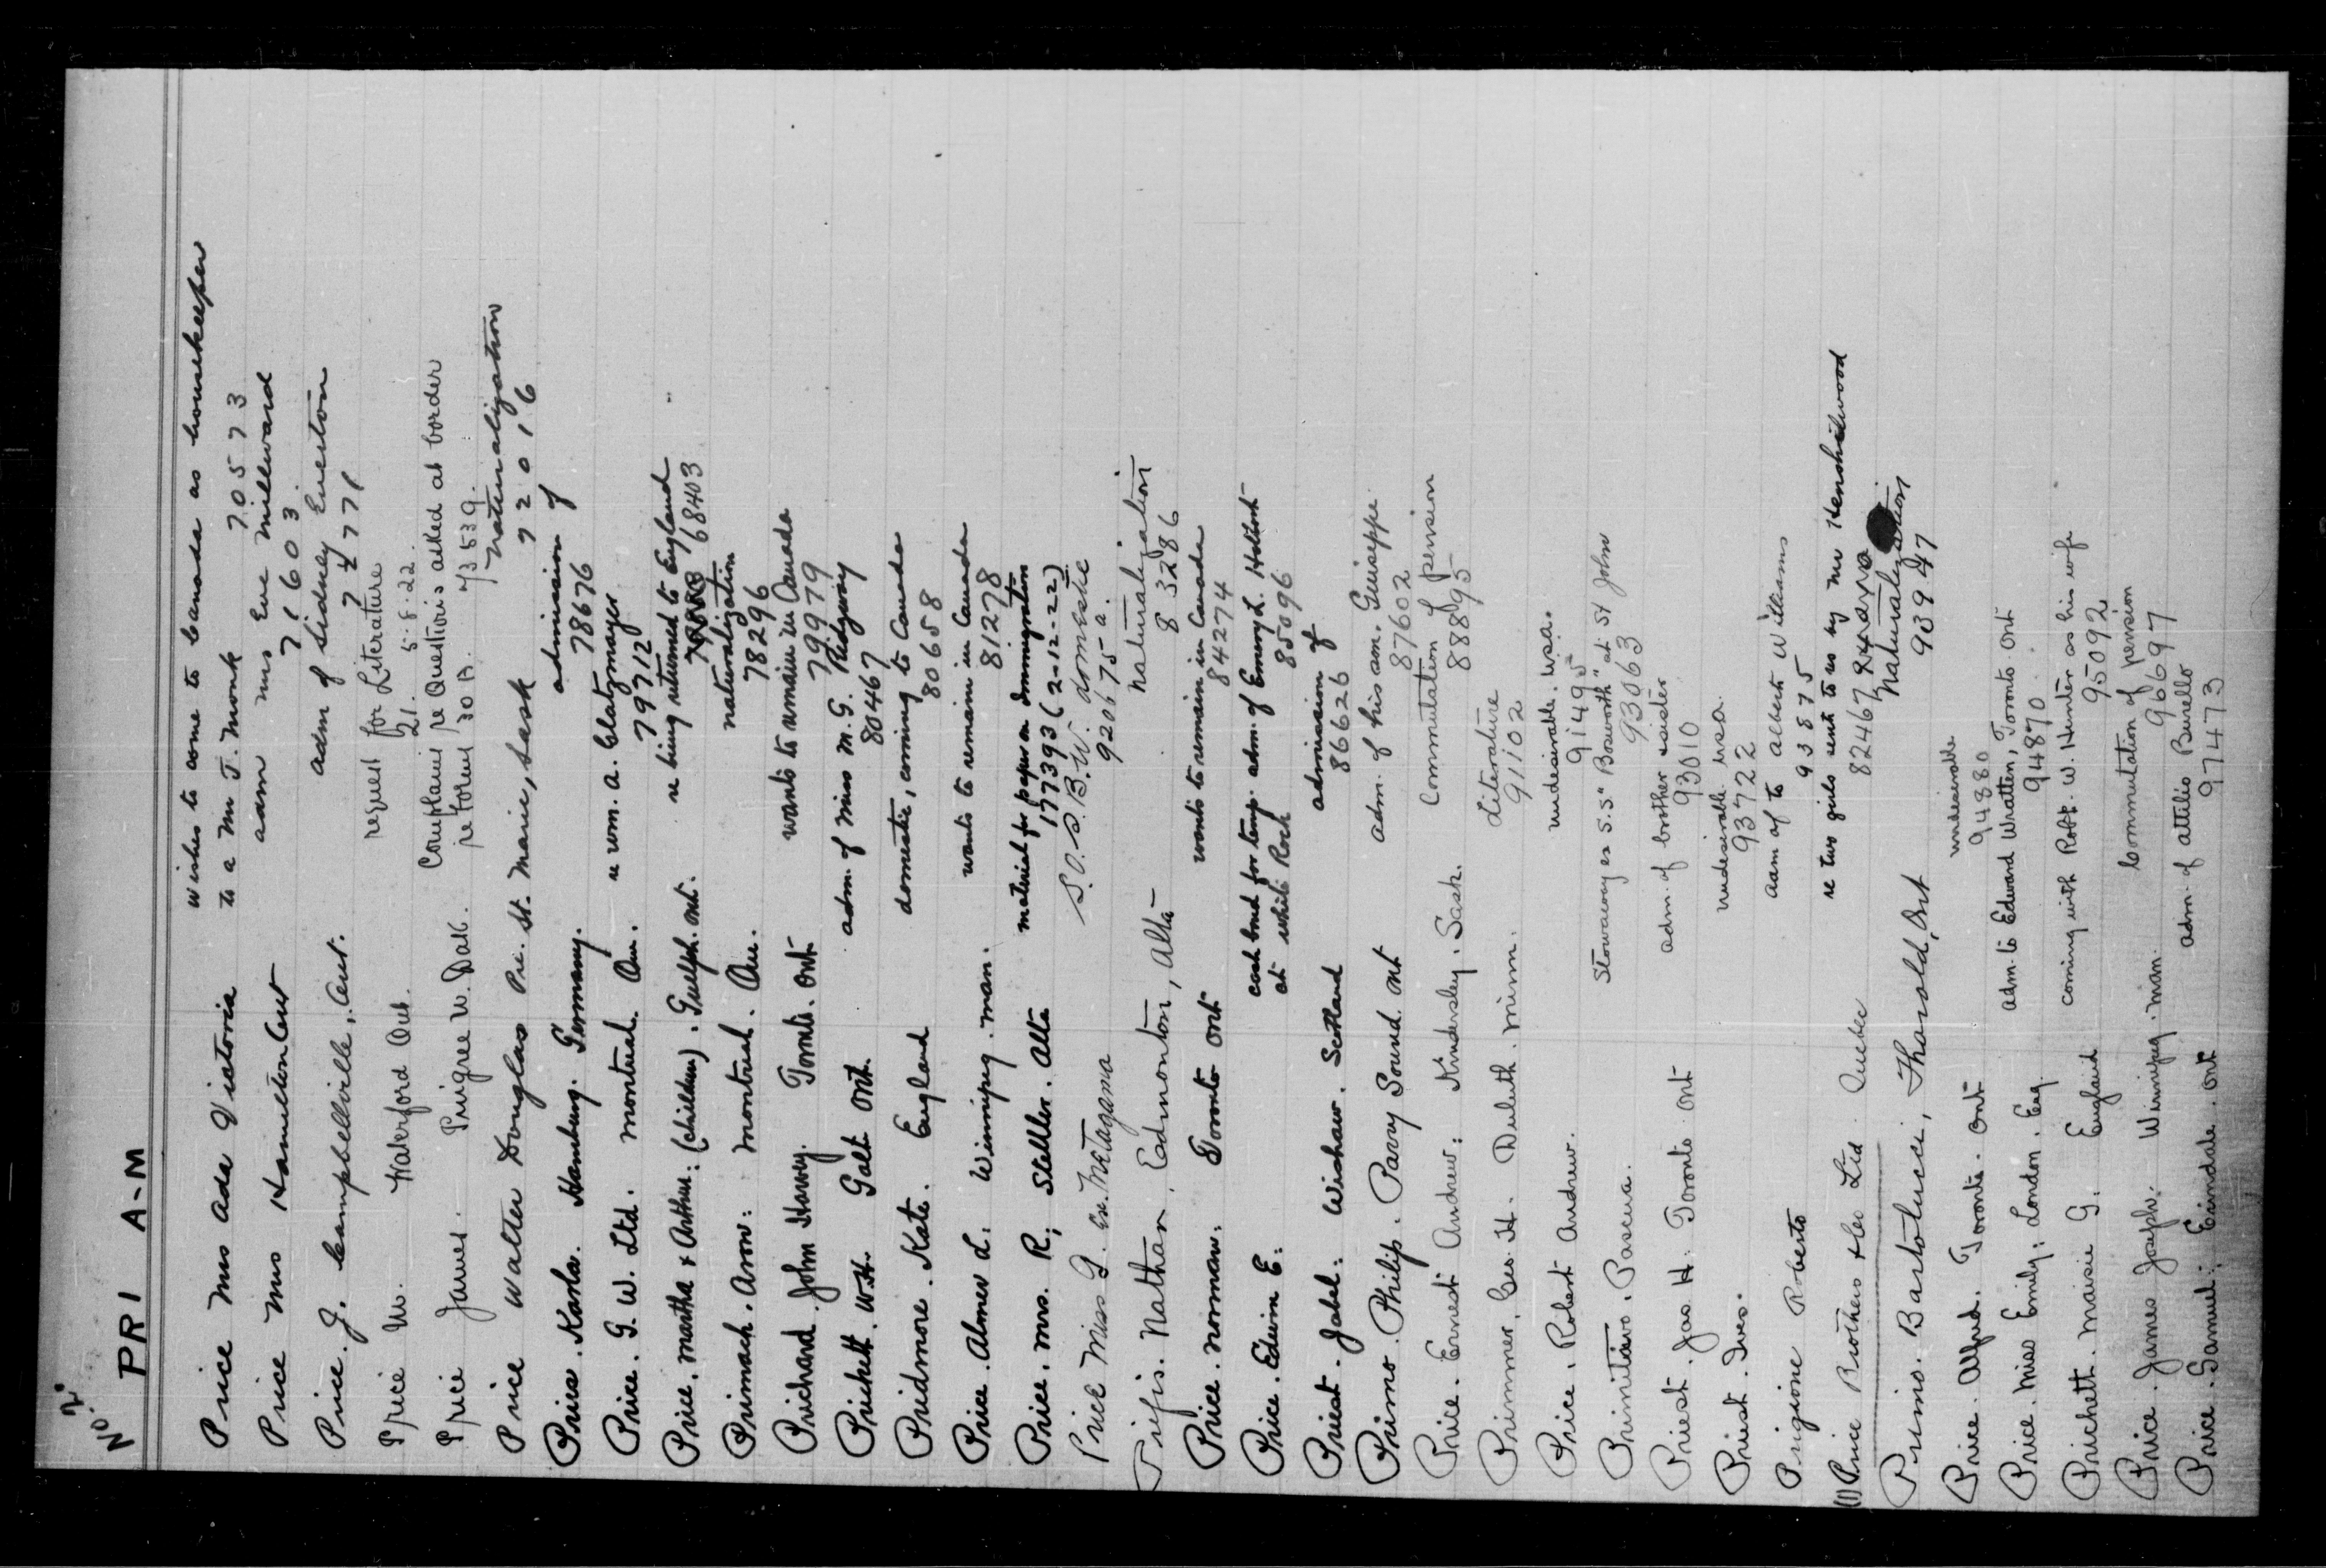 No. 2.
PRI A-M
Price Mrs Ada Victoria wishes to come to Canada as housekeeper
to a Mr T. Monk 70573
Price Mrs Hamilton Ont adm Mrs Eve Millward
71603
Price. J. Campbellville, Ont. adm of Sidney Eveston
74771
Price W. Waterford Ont. request for Literature
21. 5.8.22.
Price James. Pingree N. Dak. Complains re Questions asked at border
re Form 30 B. 73539.
Price Walter Douglas Pre. St. Marie, Sask Naturalization
72016
Priess. Karla. Hamburg. Germany. admission of
78676
Price. G. W. Ltd. Montreal. Que. re wm. A. Glatzmayer
79712
Price. Martha & Arthur: (children). Guelph. Ont. re being returned to England
68403
Primach. Aron: Montreal. Que. naturalization
78296
Prichard. John Harvey. Toronto. Ont wants to remain in Canada
79979
Prichett. W.H. Galt Ont. adm. of Miss M. G. Ridgway
80467
Pridmore. Kate. England domestic, coming to Canada
80658
Price. Almer L. Winnipeg. Man. wants to remain in Canada
81278
Price. Mrs. R; Stettler. Alta material for paper on Immigration
177393 (2-12-22)
Price Miss G. Ex. Metagama S.O.S.B.W. domestic
920675 a.
Prifis. Nathan. Edmonton, Alta naturalization
83286
Price. Norman. Toronto Ont wants to remain in Canada
84274
Price. Edwin E: cash bond for temp. adm. of Emery L.
at White Rock 85096
Priest. Jabel: Wishaw. Scotland admission of
86626
Primo. Philip. Parry Sound. Ont adm. of his son. Guiseppe
87602
Price. Ernest Andrew: Kindersley. Sask. Commutation of pension
88895
Primmer. Geo. H. Duluth. Minn. Literature
91102
Price. Robert Andrew. undesirable. U.S.A.
91495
Primitavo. Pascua. Stowaway ex S.S. "Bosworth" at St John
93063
Priest. Jas H. Toronto Ont adm. of brother & sister
93010
Priest. Ives. undesirable U.S.A.
93722
Prigione Roberto adm of to Albert Williams
93875
(1) Price Brothers & Co Ltd Quebec re two girls sent to us by Mr Henshelwood
82467
Primo. Bartolucci, Thorold, Ont Naturalization
93947
Price. Alfred. Toronto. Ont undesirable
94880
Price. Miss Emily; London. Eng. adm. to Edward Wratten, Toronto Ont
94870.
Prichett. Maisie G. England coming with Robt. W. Hunter as his wife
95092
Price. James Joseph: Winnipeg. Man. Commutation of pension
96697
Price. Samuel: Erindale. Ont adm. of Attilio Burello
97473